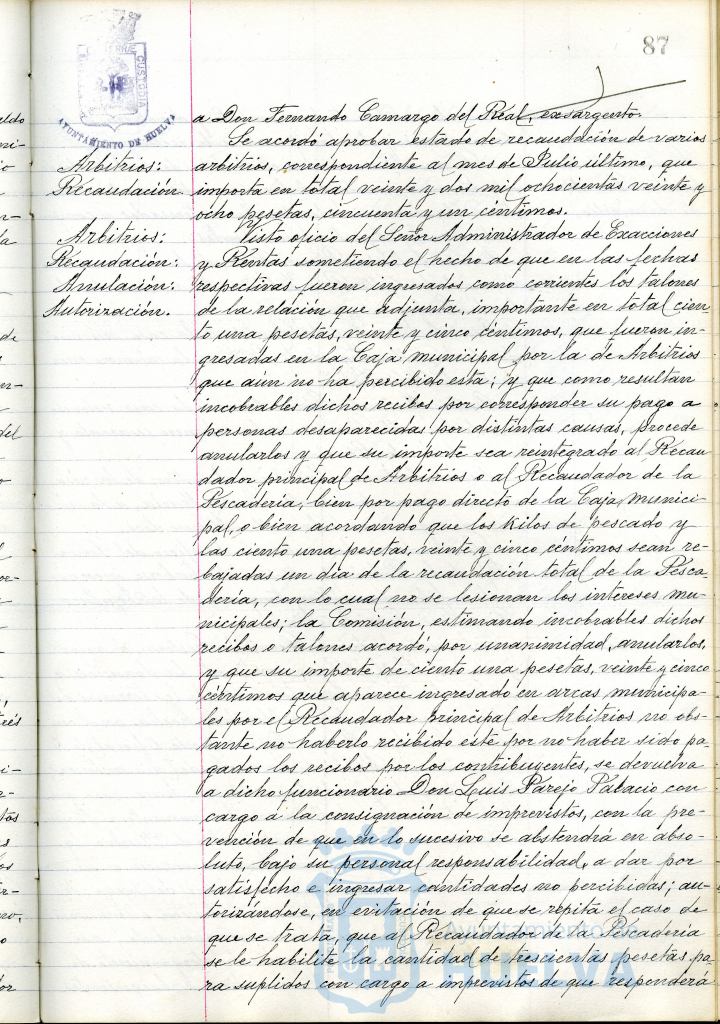 87
CUSTODIA
AYUNTAMIENTO DE HUELVA
a Don Fernando Camargo del Real, exsargento.
Se acordó aprobar estado de recaudación de varios
Arbitrios:
Recaudación
arbitrios, correspondiente al mes de Julio último, que
importa en total veinte y dos mil ochocientas veinte y
ocho pesetas, cincuenta y un céntimos.
Arbitrios:
Recaudación:
Anulación:
Autorización.
Visto oficio del Señor Administrador de Exacciones
y Rentas sometiendo el hecho de que en las fechas
respectivas fueron ingresados como corrientes los talones
de la relación que adjunta, importante en total cien-
to una pesetas, veinte y cinco céntimos, que fueron in-
gresadas en la Caja municipal por la de Arbitrios
que aun no ha percibido esta; y que como resultan
incobrables dichos recibos por corresponder su pago a
personas desaparecidas por distintas causas, procede
anularlos y que su importe sea reintegrado al Recau-
dador principal de Arbitrios o al Recaudador de la
Pescadería, bien por pago directo de la Caja munici-
pal, o bien acordando que los kilos de pescado y
las ciento una pesetas, veinte y cinco céntimos sean re-
bajadas un día de la recaudación total de la Pesca-
dería, con lo cual no se lesionan los intereses mu-
nicipales; la Comisión, estimando incobrables dichos
recibos o talones acordó, por unanimidad, anularlos,
y que su importe de ciento una pesetas, veinte y cinco
céntimos que aparece ingresado en arcas municipa-
les por el Recaudador principal de Arbitrios no obs-
tante no haberlo recibido este por no haber sido pa-
gados los recibos por los contribuyentes, se devuelva
a dicho funcionario Don Luis Parejo Palacio con
cargo a la consignación de imprevistos, con la pre-
vención de que en lo sucesivo se abstendrá en abso-
luto, bajo su personal responsabilidad, a dar por
satisfecho e ingresar cantidades no percibidas; au-
torizándose, en evitación de que se repita el caso de
que se trata, que al Recaudador de la Pescadería
se le habilite la cantidad de trescientas pesetas pa-
ra suplidos con cargo a imprevistos de que responderá
Ayuntamiento de
HUELVA